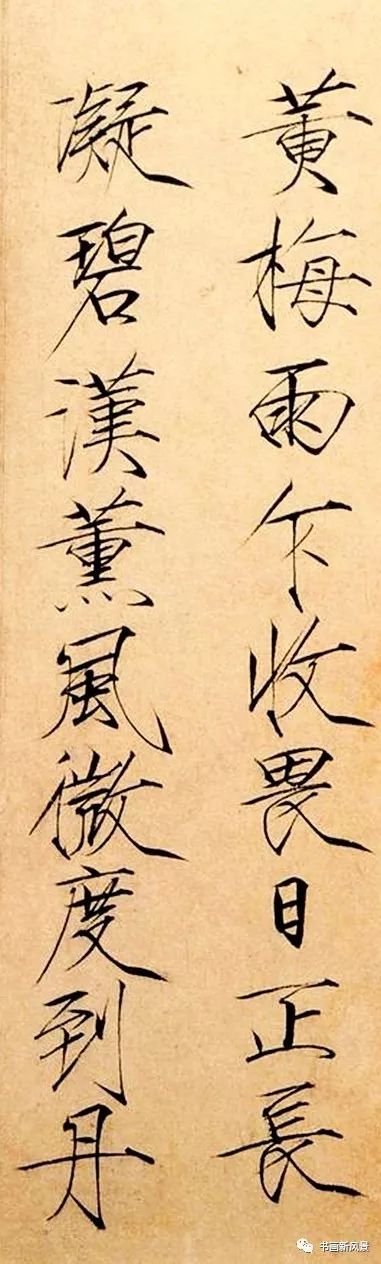 黄梅雨乍收畏日正長
凝碧漢薰風微度到丹
书画新风景